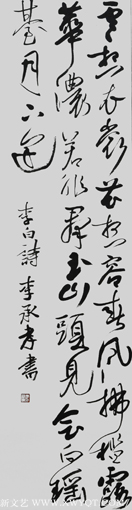 雲想衣裳花想容春風拂檻露
華濃若非群玉山頭見會向瑤
臺月下逢
李白詩 李承孝書
新文艺